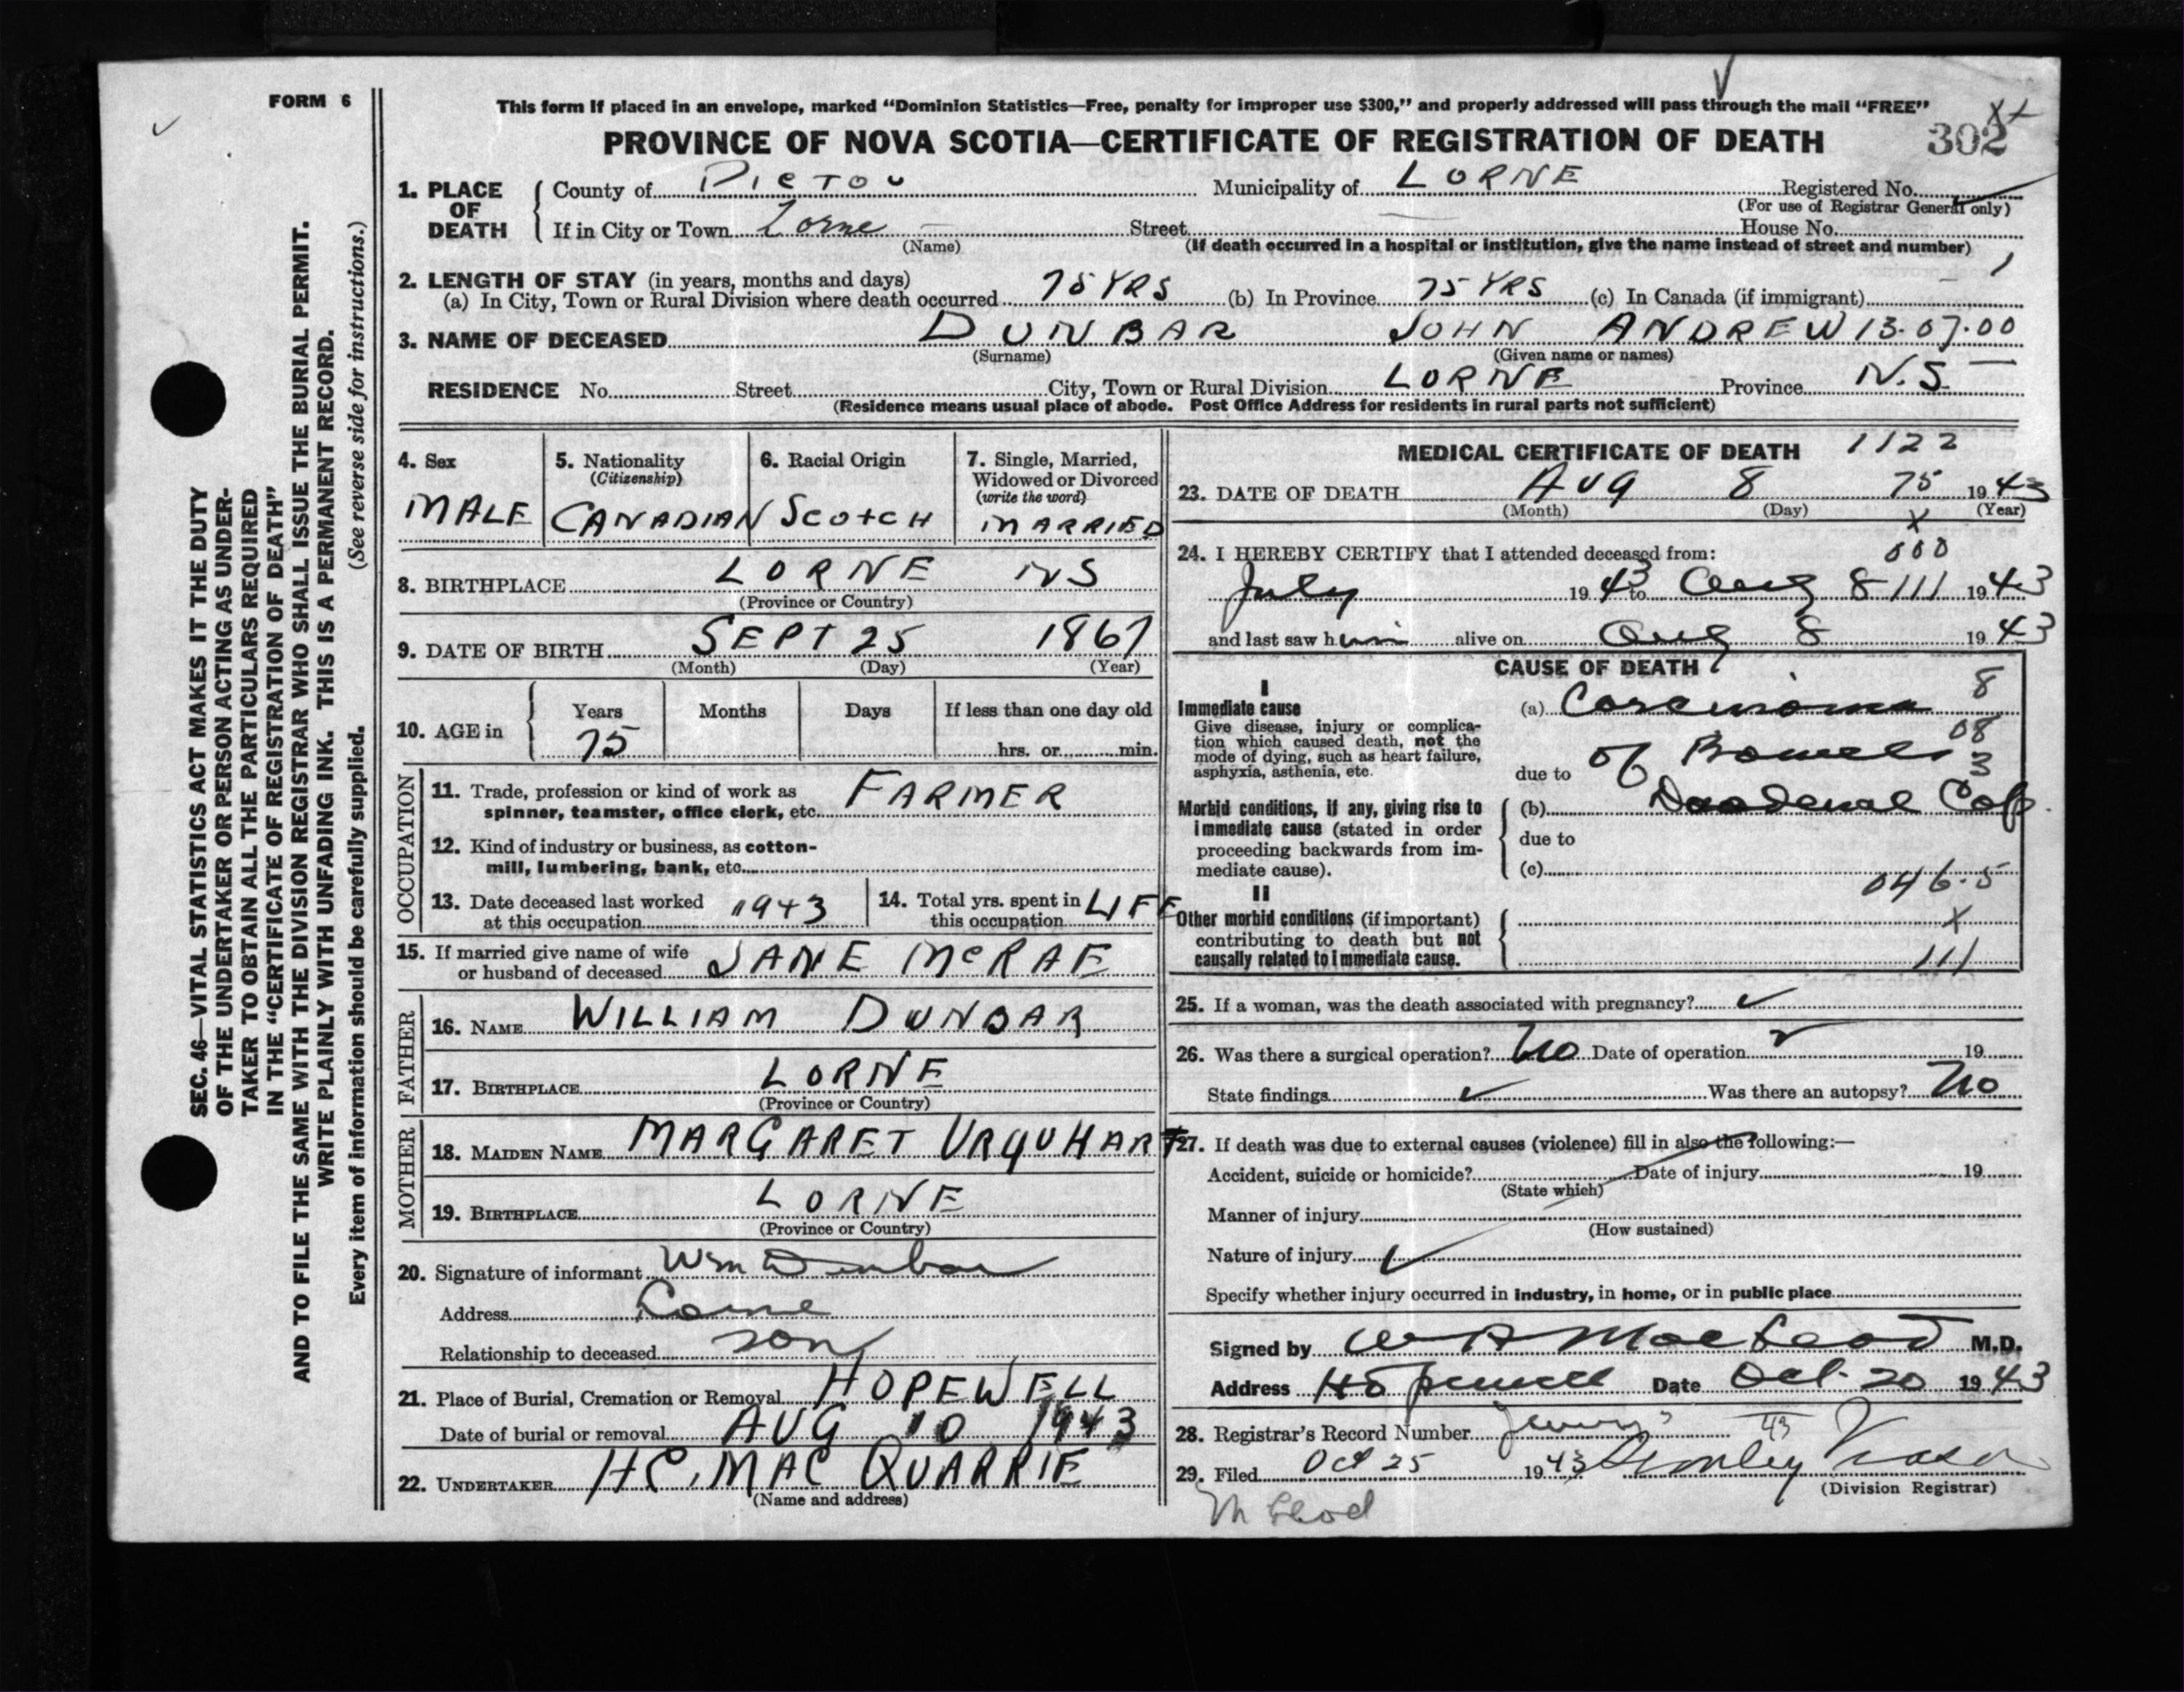 FORM 6
This form if placed in an envelope, marked “Dominion Statistics—Free, penalty for improper use $300,” and properly addressed will pass through the mail “FREE”
PROVINCE OF NOVA SCOTIA—CERTIFICATE OF REGISTRATION OF DEATH
302
1. PLACE OF DEATH
County of PICTOU Municipality of LORNE Registered No.
(For use of Registrar General only)
If in City or Town Lorne Street House No.
(Name) (If death occurred in a hospital or institution, give the name instead of street and number)
2. LENGTH OF STAY (in years, months and days)
(a) In City, Town or Rural Division where death occurred 75 YRS (b) In Province 75 YRS (c) In Canada (if immigrant)
3. NAME OF DECEASED DUNBAR JOHN ANDREW 13.07.00
(Surname) (Given name or names)
RESIDENCE No. Street City, Town or Rural Division LORNE Province N.S.
(Residence means usual place of abode. Post Office Address for residents in rural parts not sufficient)
4. Sex
MALE
5. Nationality
(Citizenship)
CANADIAN
6. Racial Origin
SCOTCH
7. Single, Married,
Widowed or Divorced
(write the word)
MARRIED
8. BIRTHPLACE LORNE NS
(Province or Country)
9. DATE OF BIRTH SEPT 25 1867
(Month) (Day) (Year)
10. AGE in
Years Months Days If less than one day old
75 hrs. or min.
OCCUPATION
11. Trade, profession or kind of work as
spinner, teamster, office clerk, etc. FARMER
12. Kind of industry or business, as cotton-
mill, lumbering, bank, etc.
13. Date deceased last worked
at this occupation 1943
14. Total yrs. spent in
this occupation LIFE
15. If married give name of wife
or husband of deceased JANE McRAE
FATHER
16. NAME WILLIAM DUNBAR
17. BIRTHPLACE LORNE
(Province or Country)
MOTHER
18. MAIDEN NAME MARGARET URQUHART
19. BIRTHPLACE LORNE
(Province or Country)
20. Signature of informant Wm Dunbar
Address Lorne
Relationship to deceased son
21. Place of Burial, Cremation or Removal HOPEWELL
Date of burial or removal AUG 10 1943
22. UNDERTAKER H.C. MAC QUARRIE
(Name and address)
MEDICAL CERTIFICATE OF DEATH 1122
23. DATE OF DEATH AUG 8 75 1943
(Month) (Day) (Year)
X
24. I HEREBY CERTIFY that I attended deceased from: 000
July 1943 to Aug 8 111 1943
and last saw him alive on Aug 8 1943
CAUSE OF DEATH
I
Immediate cause
Give disease, injury or complica-
tion which caused death, not the
mode of dying, such as heart failure,
asphyxia, asthenia, etc.
(a) Carcinoma 8
08
due to of Bowels 3
Morbid conditions, if any, giving rise to
immediate cause (stated in order
proceeding backwards from im-
mediate cause).
(b) Duodenal Cap.
due to
(c)
046.5
II
Other morbid conditions (if important)
contributing to death but not
causally related to immediate cause.
X
111
25. If a woman, was the death associated with pregnancy?
26. Was there a surgical operation? No Date of operation 19
State findings Was there an autopsy? No
27. If death was due to external causes (violence) fill in also the following:—
Accident, suicide or homicide? Date of injury 19
(State which)
Manner of injury
(How sustained)
Nature of injury
Specify whether injury occurred in industry, in home, or in public place
Signed by W A MacLeod M.D.
Address Hopewell Date Oct. 20 1943
28. Registrar's Record Number 43
29. Filed Oct 25 1943
(Division Registrar)
McLeod
SEC. 46—VITAL STATISTICS ACT MAKES IT THE DUTY
OF THE UNDERTAKER OR PERSON ACTING AS UNDER-
TAKER TO OBTAIN ALL THE PARTICULARS REQUIRED
IN THE “CERTIFICATE OF REGISTRATION OF DEATH”
AND TO FILE THE SAME WITH THE DIVISION REGISTRAR WHO SHALL ISSUE THE BURIAL PERMIT.
WRITE PLAINLY WITH UNFADING INK. THIS IS A PERMANENT RECORD.
Every item of information should be carefully supplied. (See reverse side for instructions.)